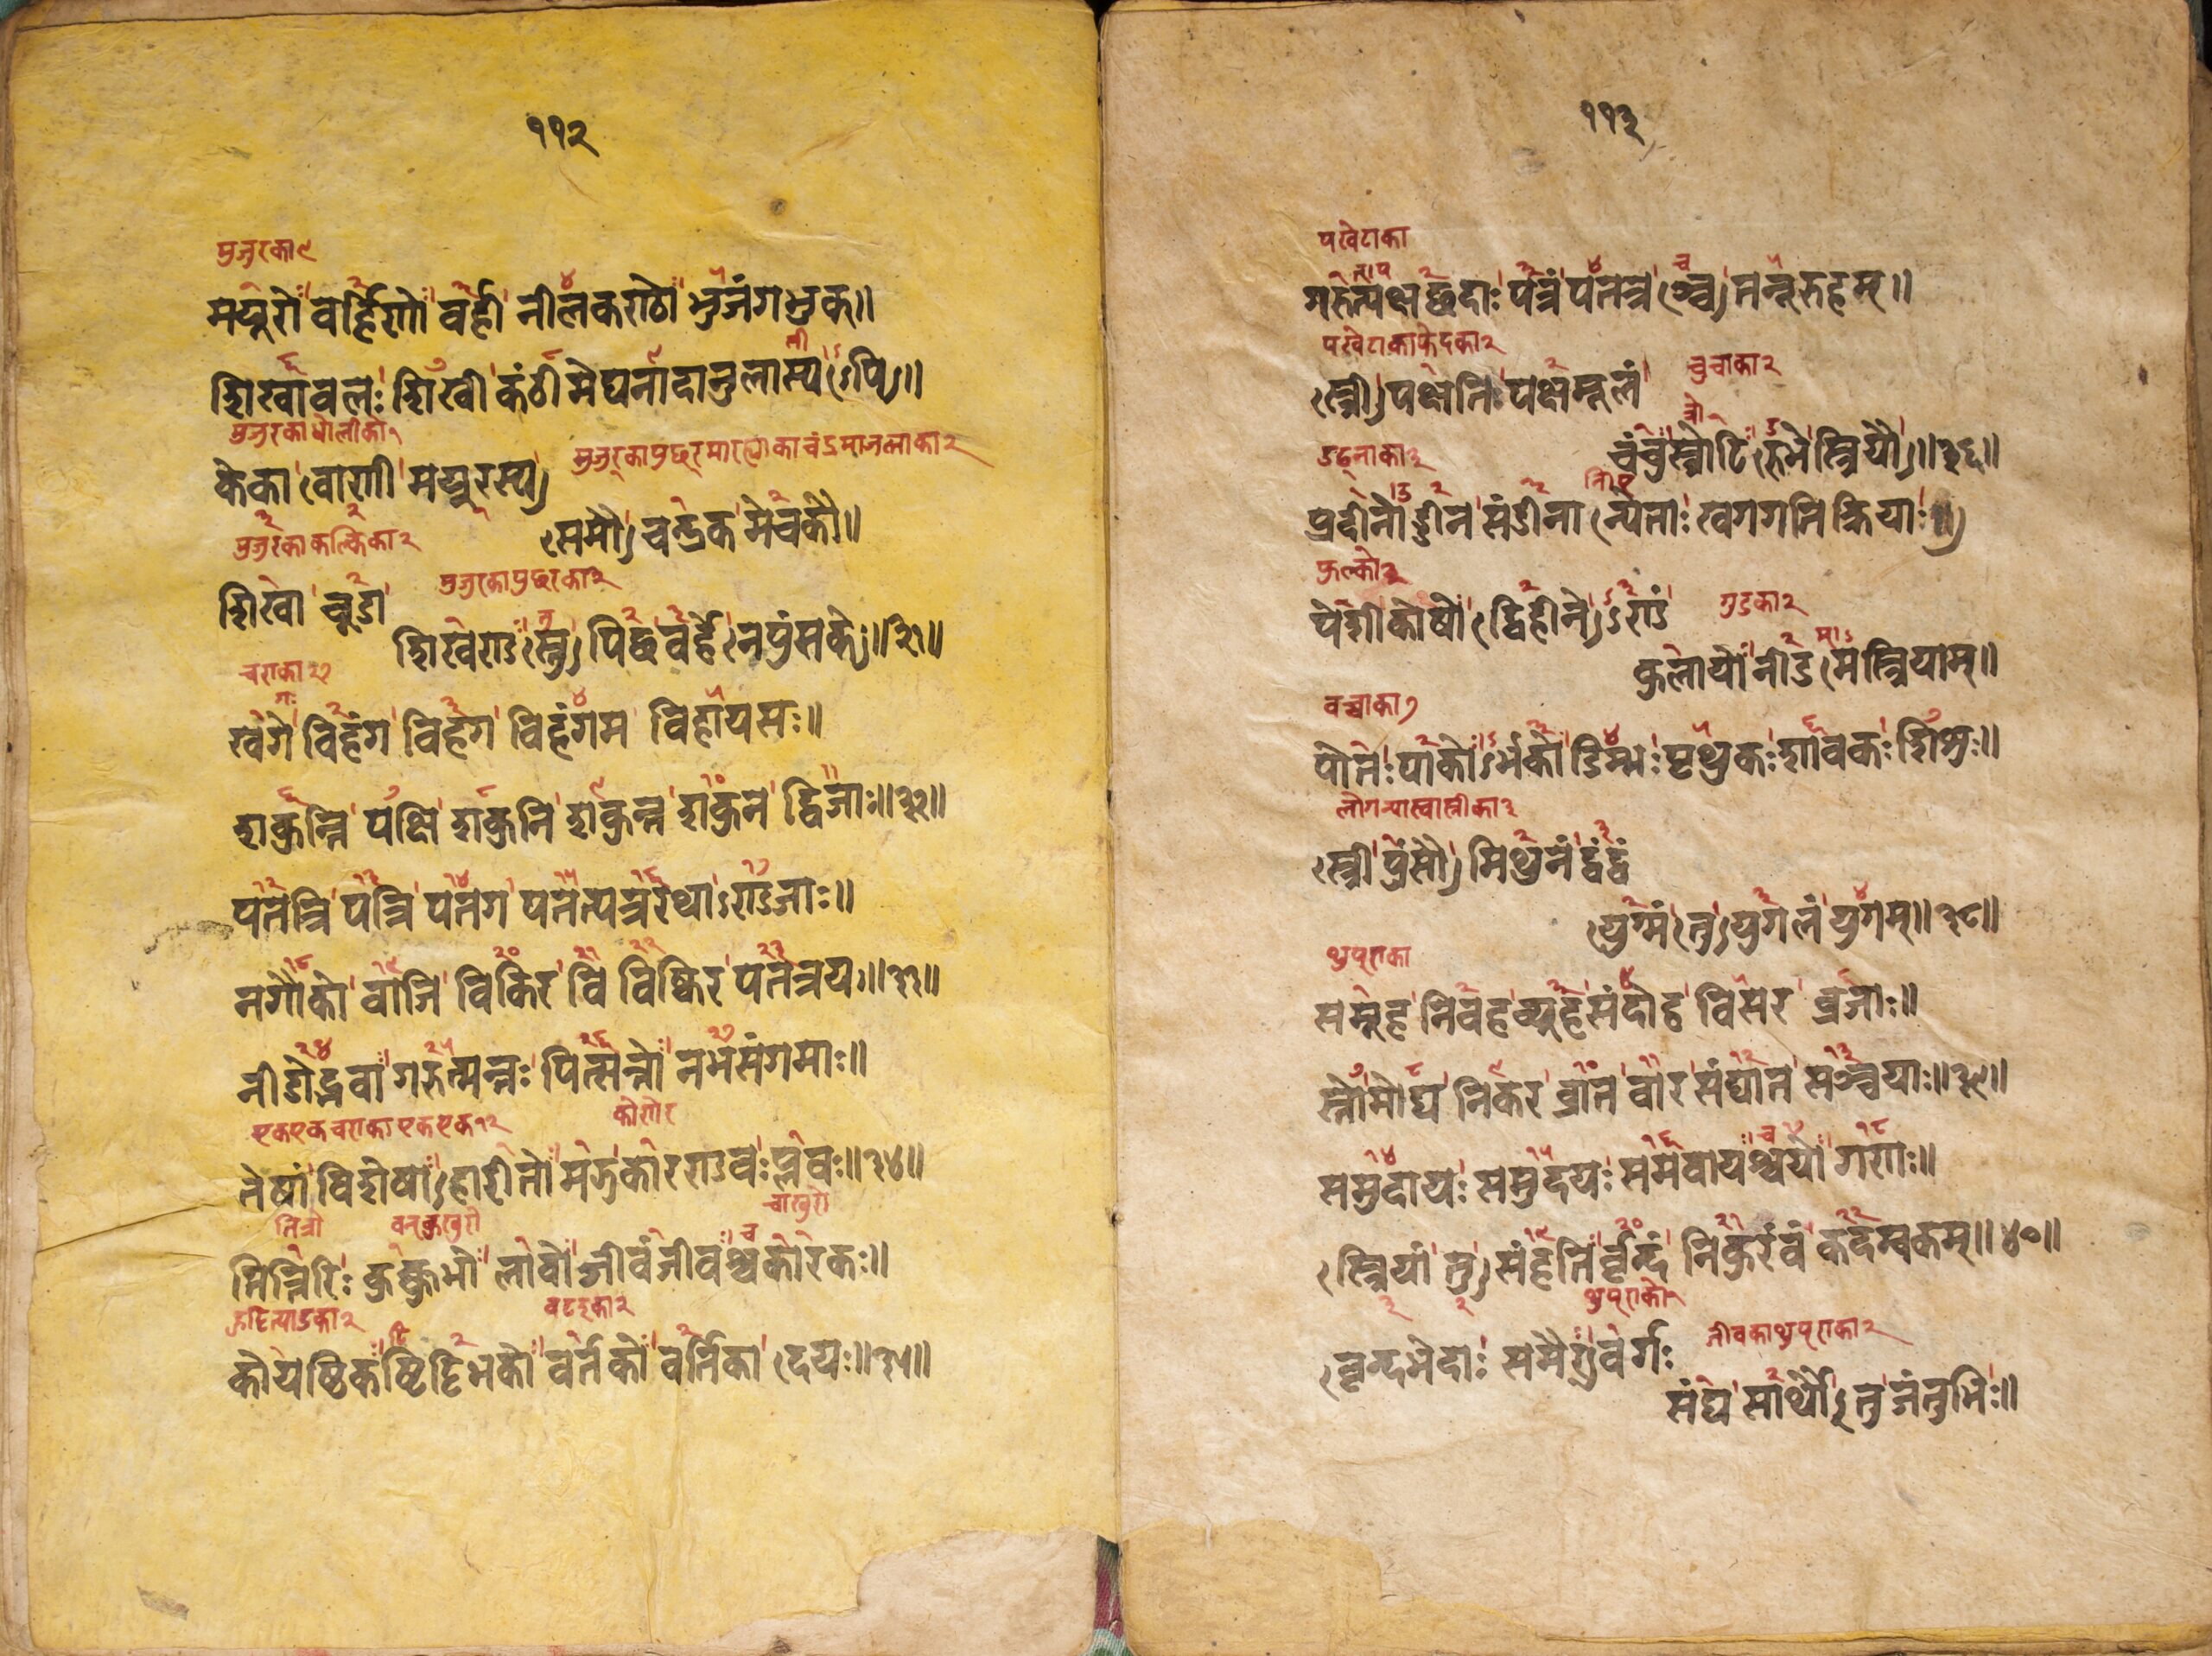 ११२
मुजुरका९
मयुरो वर्हिणो वर्ही नीलकण्ठो भुजंगभुक्॥
शिखावलः शिखी कंठी मेघनादानुलास्यऽपि॥
मुजुरकाधोलीका१
केका वाणी मयुरस्य
मुजुरका
समौ चन्द्रक मेचकौ॥
मुजुरकाकल्किका२
शिखा चूडा
मुजुरकापुछरका३
शिखण्ड स्तु पिछ वर्हे नपुंसके॥३१॥
चराका२७
खगे विहंग विहग विहंगम विहायसः॥
शकुन्ति पक्षि शकुनि शकुन्त शकुन द्विजाः॥३२॥
पतत्रि पत्रि पतग पतत्पत्ररथाऽण्डजाः॥
नगौको वाजि विकिर वि विष्किर पतत्रयः॥३३॥
नीडोद्भवा गरुत्मन्तः पित्सन्तो नभसंगमाः॥
एकएकचराका
तेषां विशेषा हारीतो मद्गु कारण्डवः प्लवः॥३४॥
तित्री
वनकुखुरो
चाखुरो
तित्तिरिः कुक्कुभो लावो जीवंजीवश्चकोरकः॥
वटइका२
कोयष्टिकष्टिट्टिभको वर्तको वर्तिका दयः॥३५॥
११३
पखेटाका
गरुत्पक्षछदाः पत्रं पतत्रञ्च तनूरुहम्॥
पखेटाकाफेदका२
स्त्री पक्षतिः पक्षमूलं
चुचाका२
चंचुस्त्रोटि रुभे स्त्रियौ॥३६॥
उड्नाका३
प्रडीनोड्डीन संडीना न्येताः खगगति क्रियाः॥
फुल्का३
पेशी कोषो द्विहीने ऽण्डं
गुडका२
कुलायो नीड मस्त्रियाम्॥
वच्चाका७
पोतः पाकोऽर्भको डिम्भः पृथुकः शावकः शिशुः॥
स्त्री पुंसौ मिथुनं द्वंद्वं
युग्मं तु युगलं युगम्॥३८॥
थुप्राका
समूह निवह व्यूह संदोह विसर व्रजाः॥
स्तोमौघ निकर व्रात वार संघात सञ्चयाः॥३९॥
समुदायः समुदयः समवायश्चयो गणः॥
स्त्रियां तु संहति र्वृन्दं निकुरंवं कदम्वकम्॥४०॥
थुप्राका२
वृन्दभेदाः समैर्गुवर्गः
जीवकाथुप्राका२
संघ सार्थौ तु जंतुभिः॥